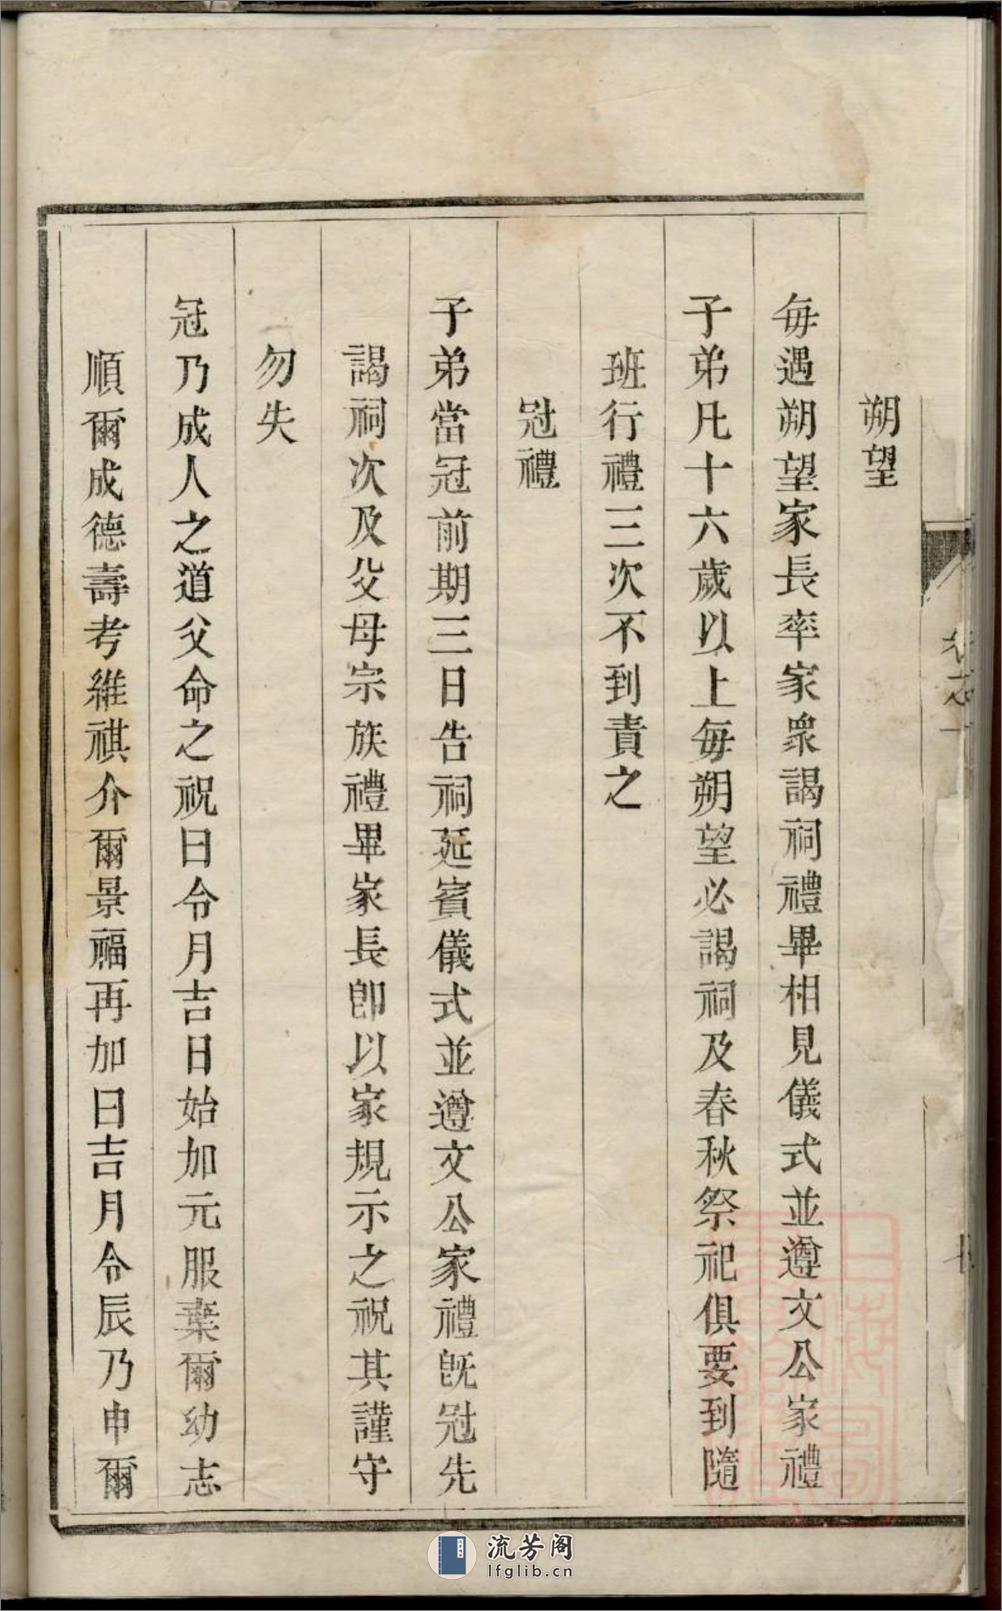 朔望
每遇朔望家長率家衆謁祠禮畢相見儀式並遵文公家禮
子弟凡十六歲以上每朔望必謁祠及春秋祭祀俱要到隨
班行禮三次不到責之
冠禮
子弟當冠前期三日告祠延賓儀式並遵文公家禮既冠先
謁祠次及父母宗族禮畢家長卽以家規示之祝其謹守
勿失
冠乃成人之道父命之祝曰令月吉日始加元服棄爾幼志
順爾成德壽考維祺介爾景福再加曰吉月令辰乃申爾
卷之一
流芳阁
lfglib.cn